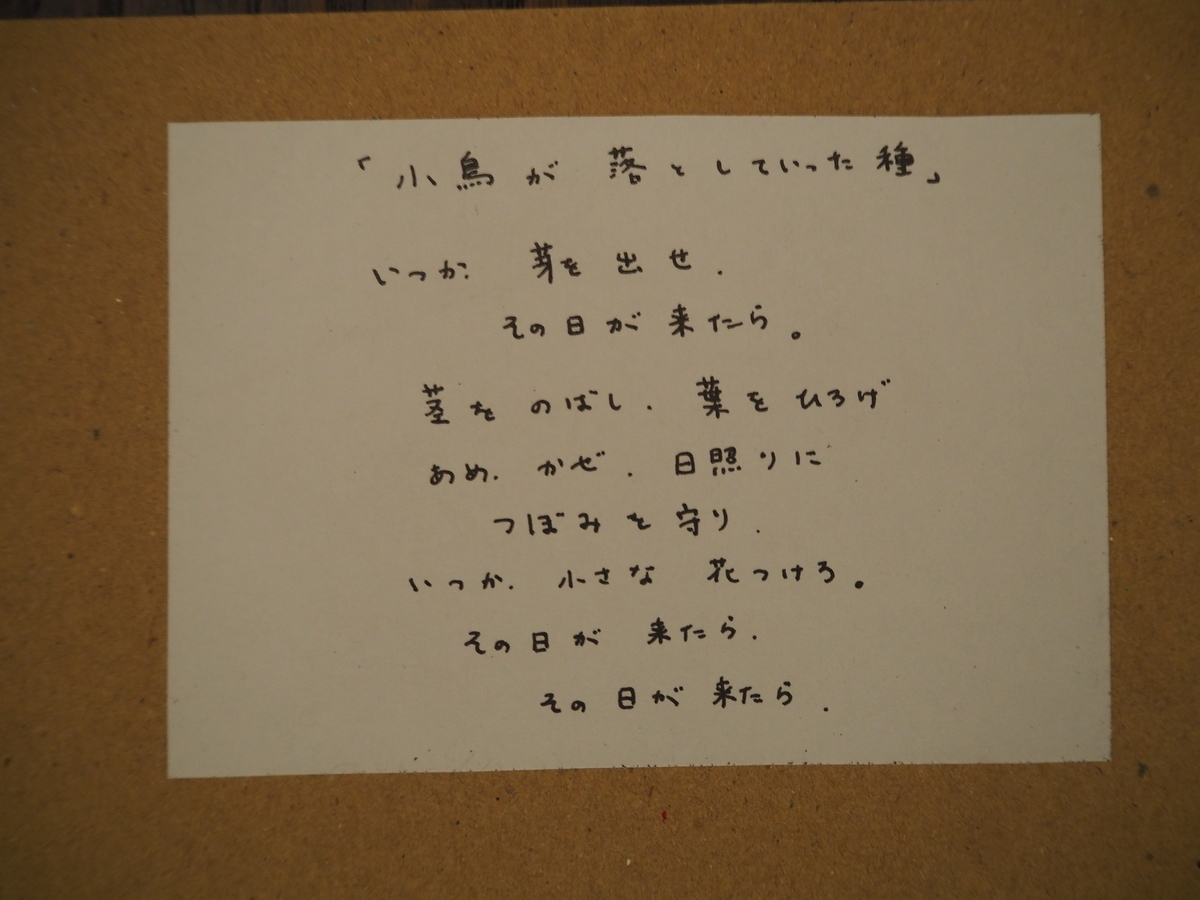 「小鳥が 落としていった種」
いつか 芽を出せ.
その日が来たら。
茎をのばし. 葉をひろげ
あめ. かぜ. 日照りに
つぼみを守り.
いつか. 小さな 花つけろ。
その日が 来たら.
その日が来たら.